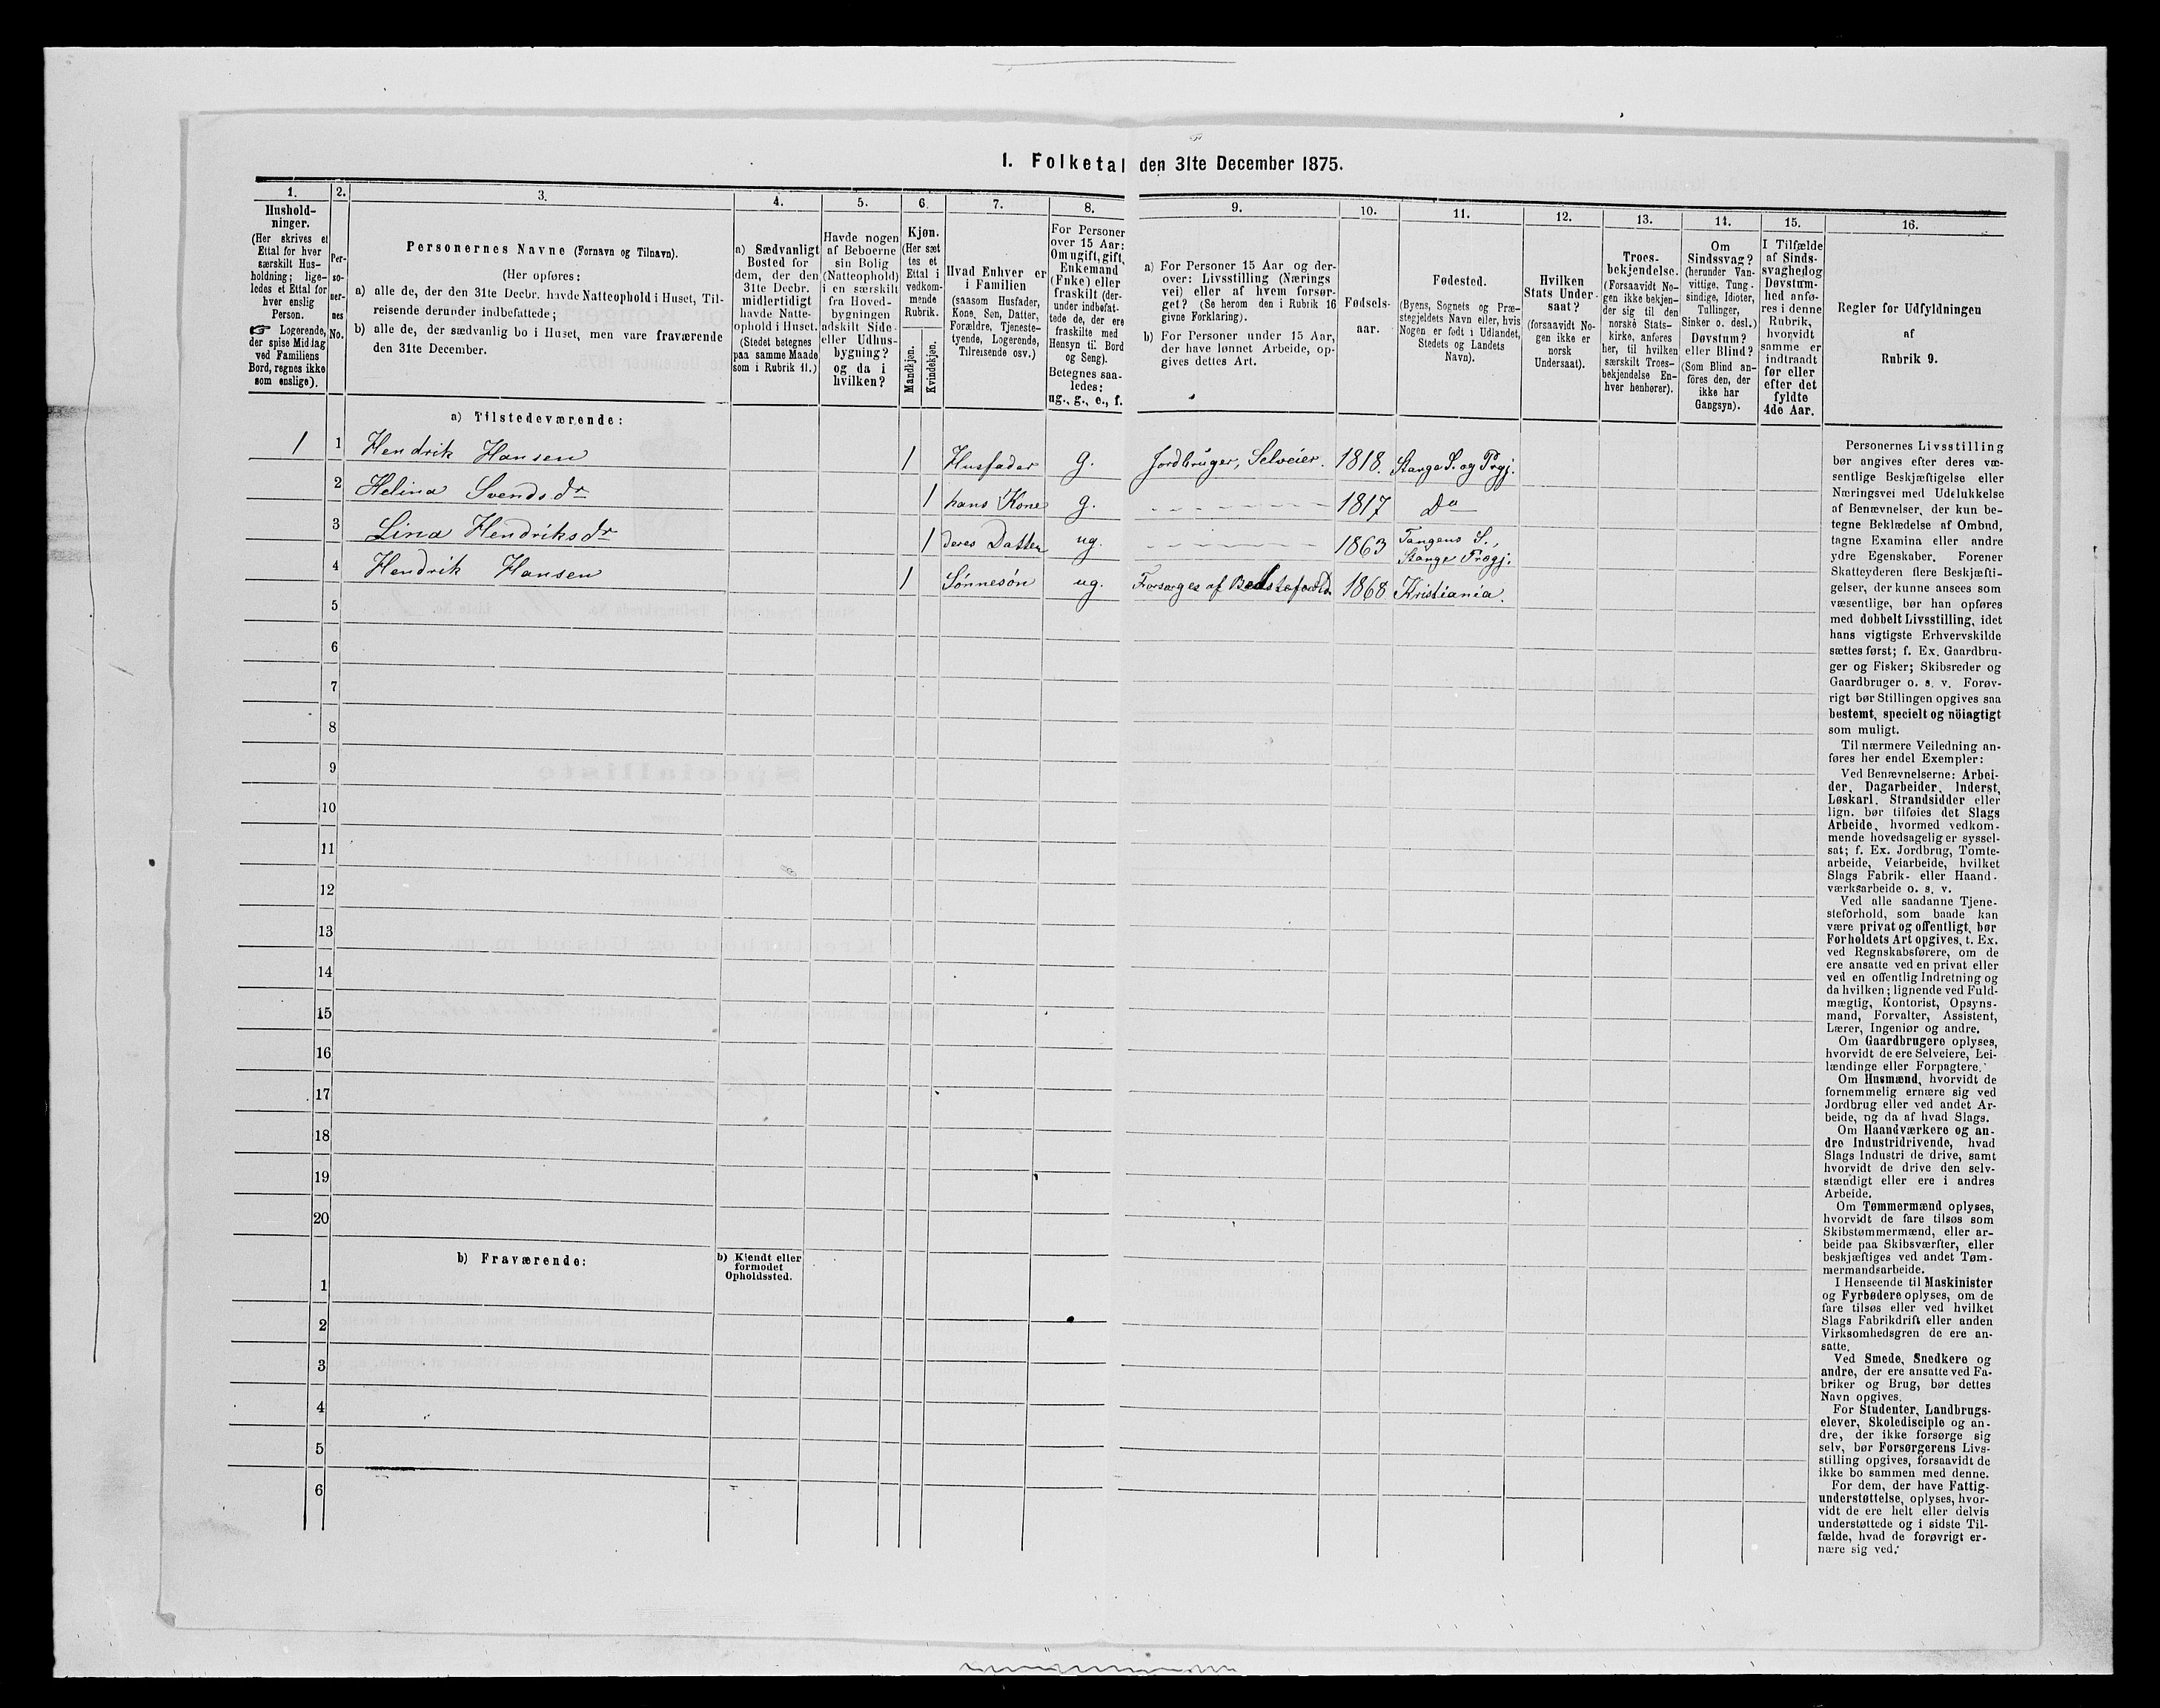 I. Folketal den 31te December 1875.
1.
2.
3.
4.
5.
6.
7.
8.
9.
10.
11.
12.
13.
14.
15.
16.
Hushold-
ninger.
(Her skrives et
Ettal for hver
særskilt Hus-
holdning; lige-
ledes et Ettal for
hver enslig
Person.
☞ Logerende,
der spise Middag
ved Familiens
Bord, regnes ikke
som enslige).
Per-
so-
ner-
nes
No.
Personernes Navne (Fornavn og Tilnavn).
(Her opføres:
a) alle de, der den 31te Decbr. havde Natteophold i Huset, Til-
reisende derunder indbefattede;
b) alle de, der sædvanlig bo i Huset, men vare fraværende
den 31te December.
a) Sædvanligt
Bosted for
dem, der den
31te Decbr.
midlertidigt
havde Natte-
ophold i Huset.
(Stedet betegnes
paa samme Maade
som i Rubrik 11.)
Havde nogen
af Beboerne
sin Bolig
(Natteophold)
i en særskilt
fra Hoved-
bygningen
adskilt Side-
eller Udhus-
bygning?
og da i
hvilken?
Kjøn.
(Her sæt
tes et
Ettal i
vedkom-
mende
Rubrik.
Mandkjøn.
Kvindekjøn.
Hvad Enhver er
i Familien
(saasom Husfader,
Kone, Søn, Datter,
Forældre, Tjeneste-
tyende, Logerende,
Tilreisende osv.)
For Personer
over 15 Aar:
Om ugift, gift,
Enkemand
(Enke) eller
fraskilt (der-
under indbefat-
tede de, der ere
fraskilte med
Hensyn til Bord
og Seng).
Betegnes saa-
ledes:
ug., g., e., f.
a) For Personer 15 Aar og der-
over: Livsstilling (Nærings
vei) eller af hvem forsør-
get? (Se herom den i Rubrik 16
givne Forklaring).
b) For Personer under 15 Aar,
der have lønnet Arbeide, op-
gives dettes Art.
Fødsels-
aar.
Fødested.
(Byens, Sognets og Præ-
stegjeldets Navn eller, hvis
Nogen er født i Udlandet,
Stedets og Landets
Navn).
Hvilken
Stats Under-
saat?
(forsaavidt No-
gen ikke er
norsk
Undersaat).
Troes-
bekjendelse.
(Forsaavidt No-
gen ikke bekjen-
der sig til den
norske Stats-
kirke, anføres
her, til hvilken
særskilt Troes-
bekjendelse En-
hver henhører).
Om
Sindssvag?
(herunder Van-
vittige, Tung-
sindige, Idioter,
Tullinger,
Sinker o. desl.)
Døvstum?
eller Blind?
(Som Blind an-
föres den, der
ikke har
Gangsyn).
I Tilfælde
af Sinds-
svaghed og
Døvstum-
hed anfø-
res i denne
Rubrik,
hvorvidt
samme er
indtraadt
før eller
efter det
fyldte
4de Aar.
Regler for Udfyldningen
af
Rubrik 9.
a) Tilstedeværende:
1 1 Hendrik Hansen 1 Husfader g. Jordbruger, Selveier. 1818. Stange S. og Prgj.
2 Helina Svendsdr 1 hans Kone g. - - - - - - 1817 Do
3 Lina Hendriksdr 1 deres Datter ug. - - - - - - 1863 Tangens S.,
Stange Prægj.
4 Hendrik Hansen 1 Sønnesøn ug. Forsørges af Bedsteforæld. 1868 Kristiania.
5
6
7
8
9
10
11
12
13
14
15
16
17
18
19
20
b) Fraværende:
b) Kjendt eller
formodet
Opholdssted.
1
2
3
4
5
6
Personernes Livsstilling
bør angives efter deres væ-
sentlige Beskjæftigelse eller
Næringsvei med Udelukkelse
af Benævnelser, der kun be-
tegne Beklædelse af Ombud,
tagne Examina eller andre
ydre Egenskaber. Forener
Skatteyderen flere Beskjæfti-
gelser, der kunne ansees som
væsentlige, bør han opføres
med dobbelt Livsstilling, idet
hans vigtigste Erhvervskilde
sættes først; f. Ex. Gaardbru-
ger og Fisker; Skibsreder og
Gaardbruger o. s. v. Forøv-
rigt bør Stillingen opgives saa
bestemt, specielt og nöiagtigt
som muligt.
Til nærmere Veiledning an-
føres her endel Exempler:
Ved Benævnelserne: Arbei-
der, Dagarbeider, Inderst,
Løskarl, Strandsidder eller
lign. bør tilføies det Slags
Arbeide, hvormed vedkom-
mende hovedsagelig er syssel-
sat; f. Ex. Jordbrug, Tomte-
arbeide, Veiarbeide, hvilket
Slags Fabrik- eller Haand-
værksarbeide o. s. v.
Ved alle saadanne Tjene-
steforhold, som baade kan
være privat og offentligt, bør
Forholdets Art opgives, t. Ex.
ved Regnskabsførere, om de
ere ansatte ved en privat eller
ved en offentlig Indretning og
da hvilken; lignende ved Fuld-
mægtig, Kontorist, Opsyns-
mand, Forvalter, Assistent,
Lærer, Ingeniør og andre.
Om Gaardbrugere oplyses,
hvorvidt de ere Selveiere, Lei-
lændinge eller Forpagtere.
Om Husmænd, hvorvidt de
fornemmelig ernære sig ved
Jordbrug eller ved andet Ar-
beide, og da af hvad Slags.
Om Haandværkere og an-
dre Industridrivende, hvad
Slags Industri de drive, samt
hvorvidt de drive den selv-
stændigt eller ere i andres
Arbeide.
Om Tømmermænd oplyses,
hvorvidt de fare tilsøs som
Skibstømmermænd, eller ar-
beide paa Skibsværfter, eller
beskjæftiges ved andet Tøm-
mermandsarbeide.
I Henseende til Maskinister
og Fyrbødere oplyses, om de
fare tilsøs eller ved hvilket
Slags Fabrikdrift eller anden
Virksomhedsgren de ere an-
satte.
Ved Smede, Snedkere og
andre, der ere ansatte ved Fa-
briker og Brug, bør dettes
Navn opgives.
For Studenter, Landbrugs-
elever, Skoledisciple og an-
dre, der ikke forsørge sig
selv, bør Forsørgerens Livs-
stilling opgives, forsaavidt de
ikke bo sammen med denne.
For dem, der have Fattig-
understøttelse, oplyses, hvor-
vidt de ere helt eller delvis
understøttede og i sidste Til-
fælde, hvad de forøvrigt er-
nære sig ved.